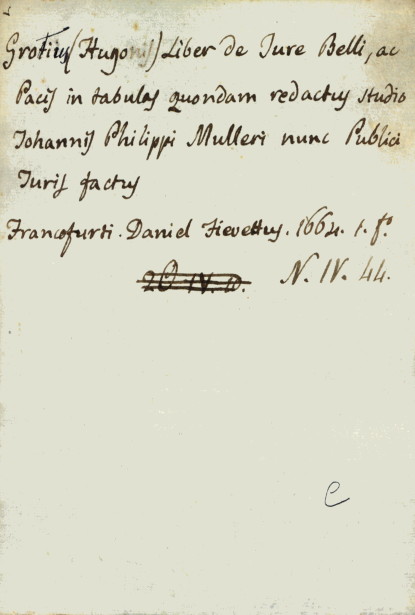 Grotius (Hugonis) Liber de Jure Belli, ac
Pacis in tabulas quondam redactus studio
Johannis Philippi Mulleri nunc Publici
Juris factus
Francofurti. Daniel Fievettus. 1664. 1. f.º
N. IV. 44.
e